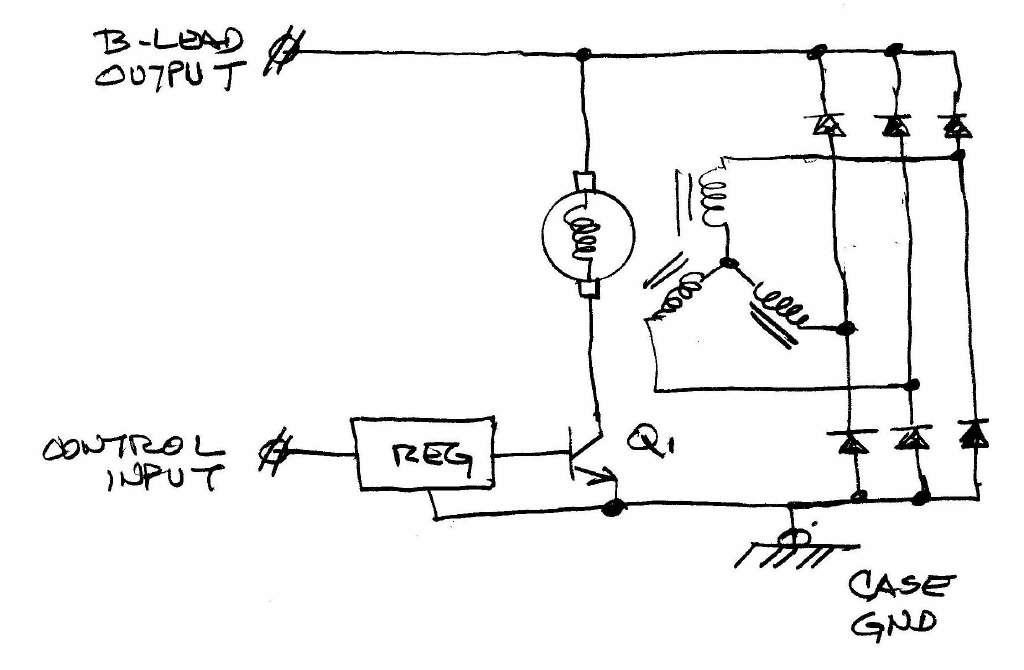 B-LEAD
OUTPUT
CONTROL
INPUT
REG
Q1
CASE
GND